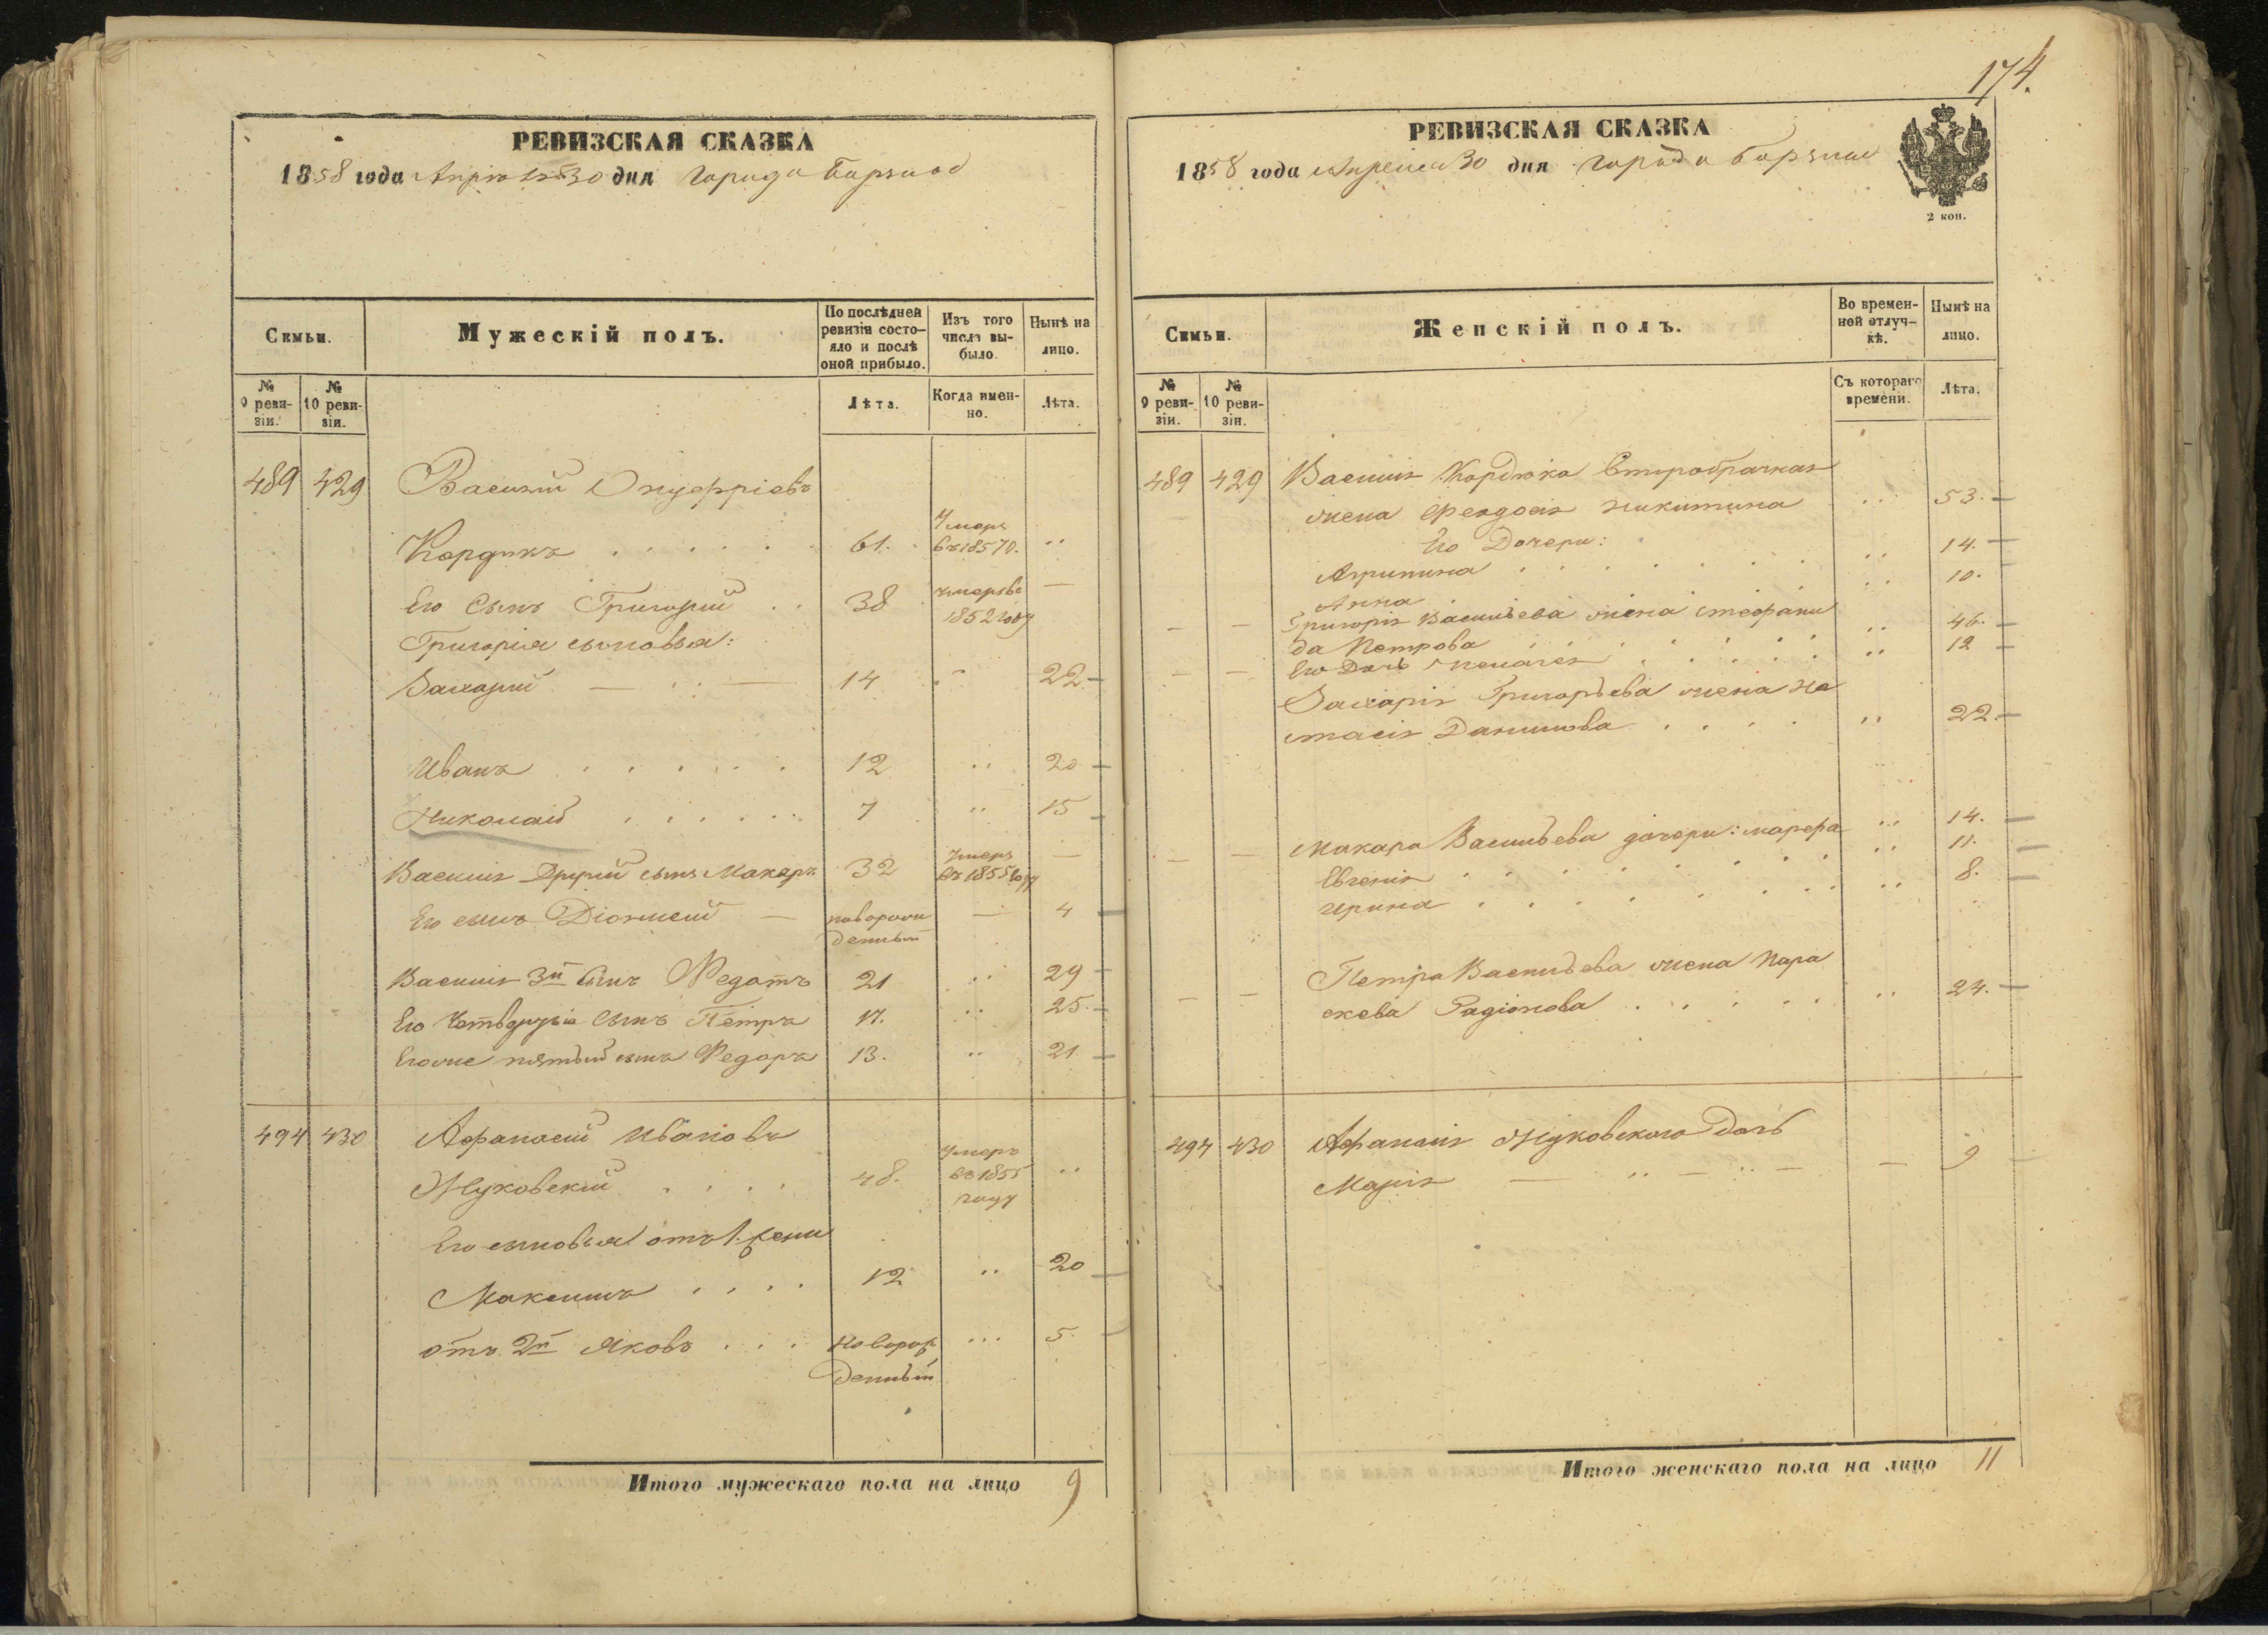 174.
РЕВИЗСКАЯ СКАЗКА
1858 года Апреля 30 дня города Борзны
Семьи.
Мужескій полъ.
По послѣдней ревизіи состояло и послѣ оной прибыло.
Изъ того числа выбыло.
Нынѣ на лицо.
№ 9 ревизіи.
№ 10 ревизіи.
Лѣта.
Когда именно.
Лѣта.
489 429 Василий Онуфріевъ
Кордикъ 61. Умеръ въ 1857 0. "
Его Сынъ Григорий 38 умеръ въ 1852 году —
Григорія сыновья:
Захарий — 14 " 22 —
Иванъ 12 " 20 —
Николай 7 " 15 —
Василия Другий сынъ Макаръ 32 Умеръ въ 1855 году —
Его сынъ Діонисий — новорожденный — 4 —
Василия 3й Сынъ Федотъ 21 " 29 —
Его Четвертый Сынъ Петръ 17. " 25. —
Егоже пятый сынъ Федоръ 13. " 21 —
494 430 Афанасий Ивановъ
Жуковский 48. Умеръ въ 1855 году "
Его сыновья отъ 1. жены
Максимъ 12 " 20 —
отъ 2й Яковъ Новорожденный ... 5. —
Итого мужескаго пола на лицо 9
РЕВИЗСКАЯ СКАЗКА
1858 года Апреля 30 дня города Борзны
2 коп.
Семьи.
Женскій полъ.
Во временной отлучкѣ.
Нынѣ на лицо.
№ 9 ревизіи.
№ 10 ревизіи.
Съ котораго времени.
Лѣта.
489 429 Василия Кордика Второбрачная
жена Феодосия Никитина " 53. —
Его Дочери:
Агрипина " 14. —
Анна " 10.
— — Григория Васильева жена Стефани
да Петрова " 46. —
— — Его Дочь " 12 —
Захария Григорьева жена На
стасия Данилова " 22. —
— — Макара Васильева дочери: Марфа " 14. —
Евгения " 11. —
Ирина " 8. —
Петра Васильева жена Пара
— — скева Радіонова " 24. —
494 430 Афанасия Жуковского Дочь
Мария — " — " — — 9 —
Итого женскаго пола на лицо 11